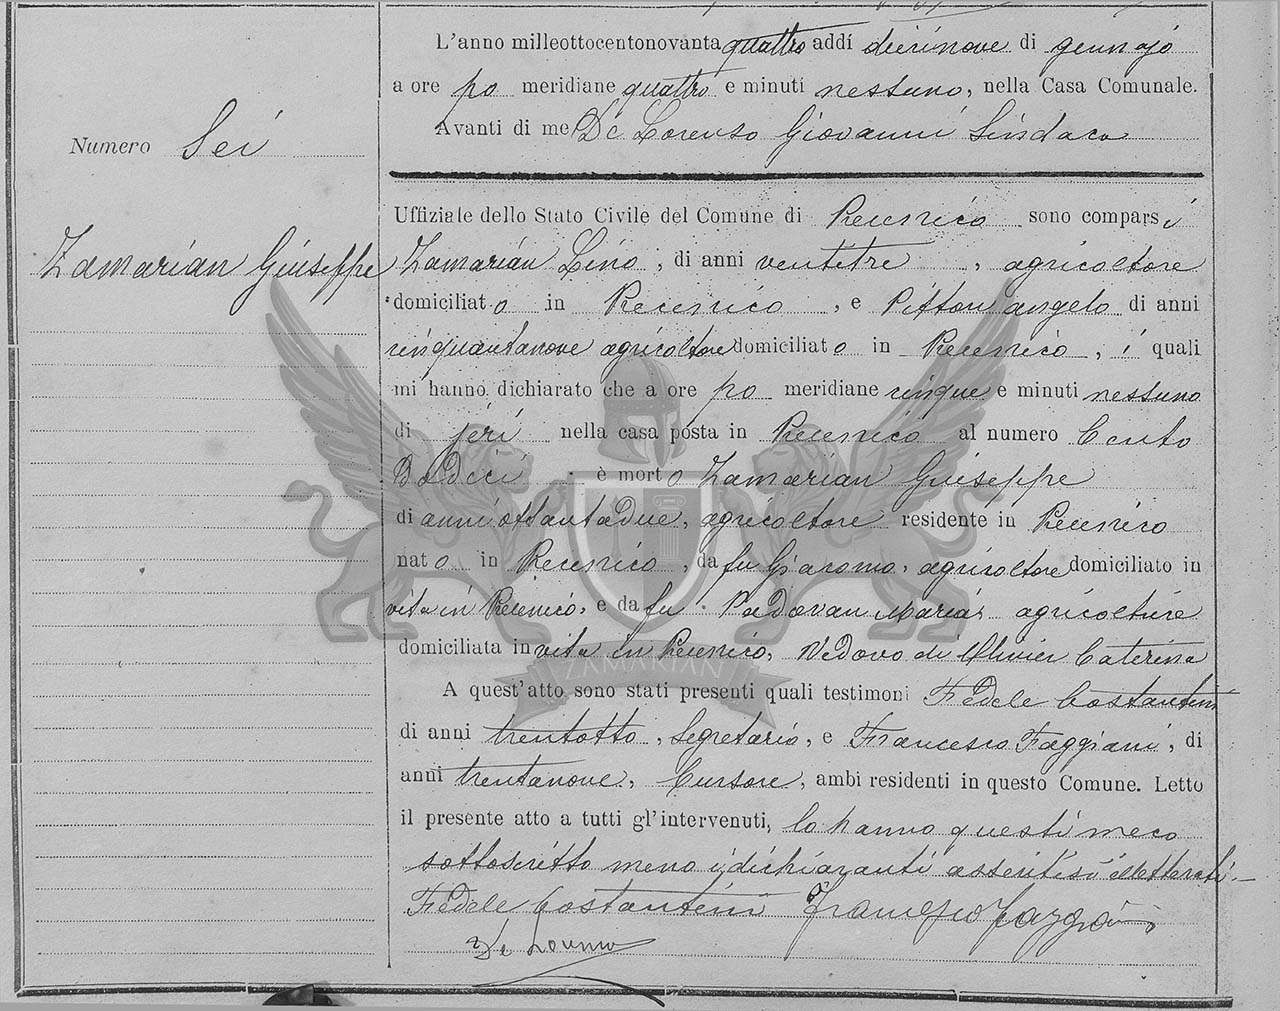 L'anno milleottocentonovantaquattro addí diecinove di gennajo
a ore po meridiane quattro e minuti nessuno, nella Casa Comunale.
Avanti di me De Lorenzo Giovanni Sindaco
Numero Sei
Uffiziale dello Stato Civile del Comune di Precenico sono comparsi
Zamarian Giuseppe
Zamarian Lino, di anni ventitre, agricoltore
domiciliato in Precenico, e Pittoni Angelo di anni
cinquantanove agricoltore domiciliato in Precenico, i quali
mi hanno dichiarato che a ore po meridiane cinque e minuti nessuno
di jeri nella casa posta in Precenico al numero Cento
Dodici è morto Zamarian Giuseppe
di anni ottantadue, agricoltore residente in Precenico
nato in Precenico, da fu Giacomo, agricoltore domiciliato in
vita in Precenico, e da fu Padovan Maria, agricoltrice
domiciliata in vita in Precenico, Vedovo di Olivier Caterina
ZAMARIAN
A quest'atto sono stati presenti quali testimoni Fedele Costantini
di anni trentotto, Segretario, e Francesco Faggiani, di
anni trentanove, Cursore, ambi residenti in questo Comune. Letto
il presente atto a tutti gl'intervenuti, lo hanno questi meco
sottoscritto meno i dichiaranti assertisi illetterati.
Fedele Costantini Francesco
De Lorenzo